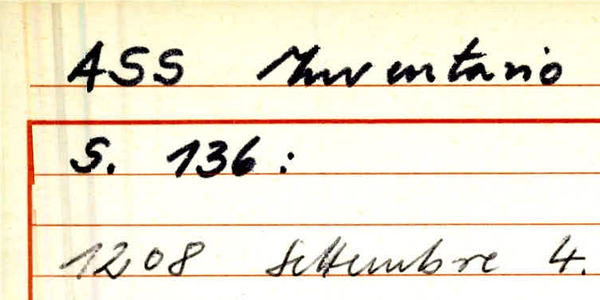 ASS Inventario
S. 136:
1208 Settembre 4.